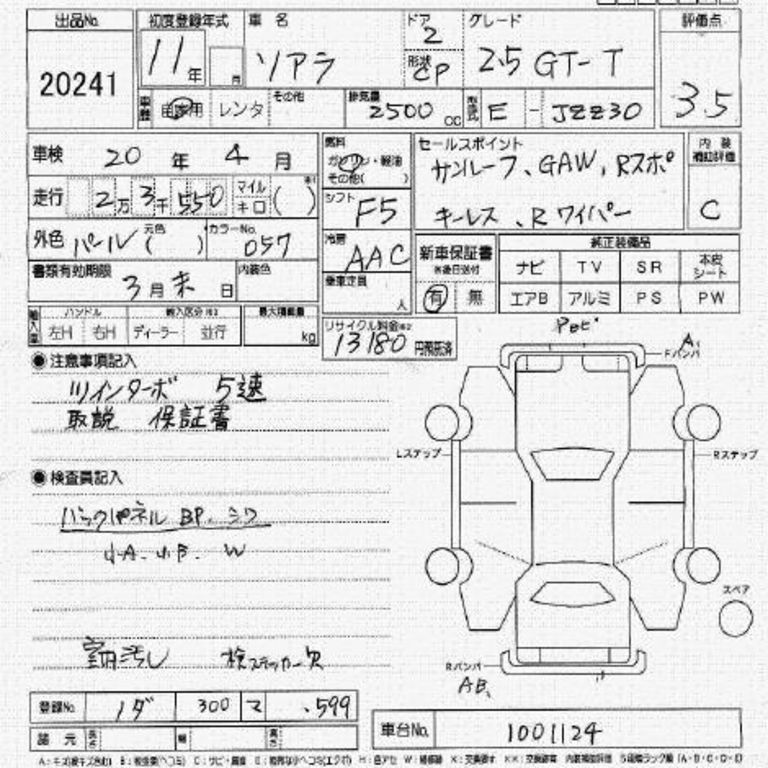 出品No. 初度登録年式 車名 ドア グレード 評価点
20241 11年 月 ソアラ 2 2.5 GT-T 3.5
形状 CP
車歴 自家用 レンタ その他 排気量 2500 CC 型式 E - JZZ30
車検 20年 4月 燃料 ガソリン・軽油 その他( ) セールスポイント 内装補助評価
サンルーフ、GAW、Rスポ
走行 2万3千550 マイル キロ ( ) シフト F5 キーレス、Rワイパー C
外色 パール 元色 ( ) カラーNo. 057 冷房 AAC 新車保証書 ※後日送付 純正装備品
ナビ TV SR 本皮シート
書類有効期限 3月末日 内装色 乗車定員 人 有 無 エアB アルミ PS PW
輸入車 ハンドル 左H 右H 輸入区分 ディーラー 並行 最大積載量 kg リサイクル料金 13180 円預託済
◉注意事項記入 Fバンパ A
ツインターボ 5速
取説 保証書
Lステップ Rステップ
◉検査員記入
バックパネル BP. シワ
小A. 小B. W
スペア
室内汚し 検ステッカー欠 Rバンパ
AB
登録No. 300 マ .599
車台No. 1001124
諸元 長さ 幅 高さ